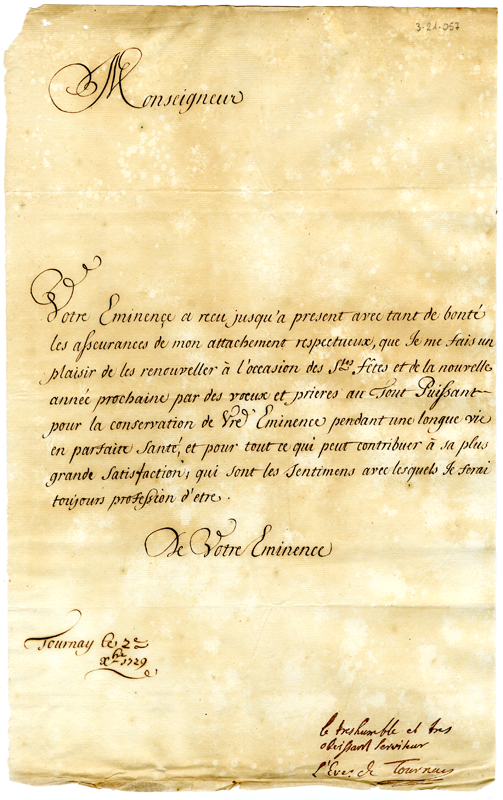 3-21-057
Monseigneur
Votre Eminençe a recu jusqu'a present avec tant de bonté
les asseurances de mon attachement respectueux, que Je me fais un
plaisir de les renouveller à l'occasion des Stes Fêtes et de la nouvelle
année prochaine par des voeux et prieres au Tout Puissant
pour la conservation de Vre Eminence pendant une longue vie
en parfaite Santé, et pour tout ce qui peut contribuer à sa plus
grande satisfaction; qui sont les Sentimens avec lesquels Je ferai
toujours profession d'etre.
De Votre Eminence
Tournay le 2e
Xbre 1729
le treshumble et tres
obeissant serviteur
L'Eves de Tournay